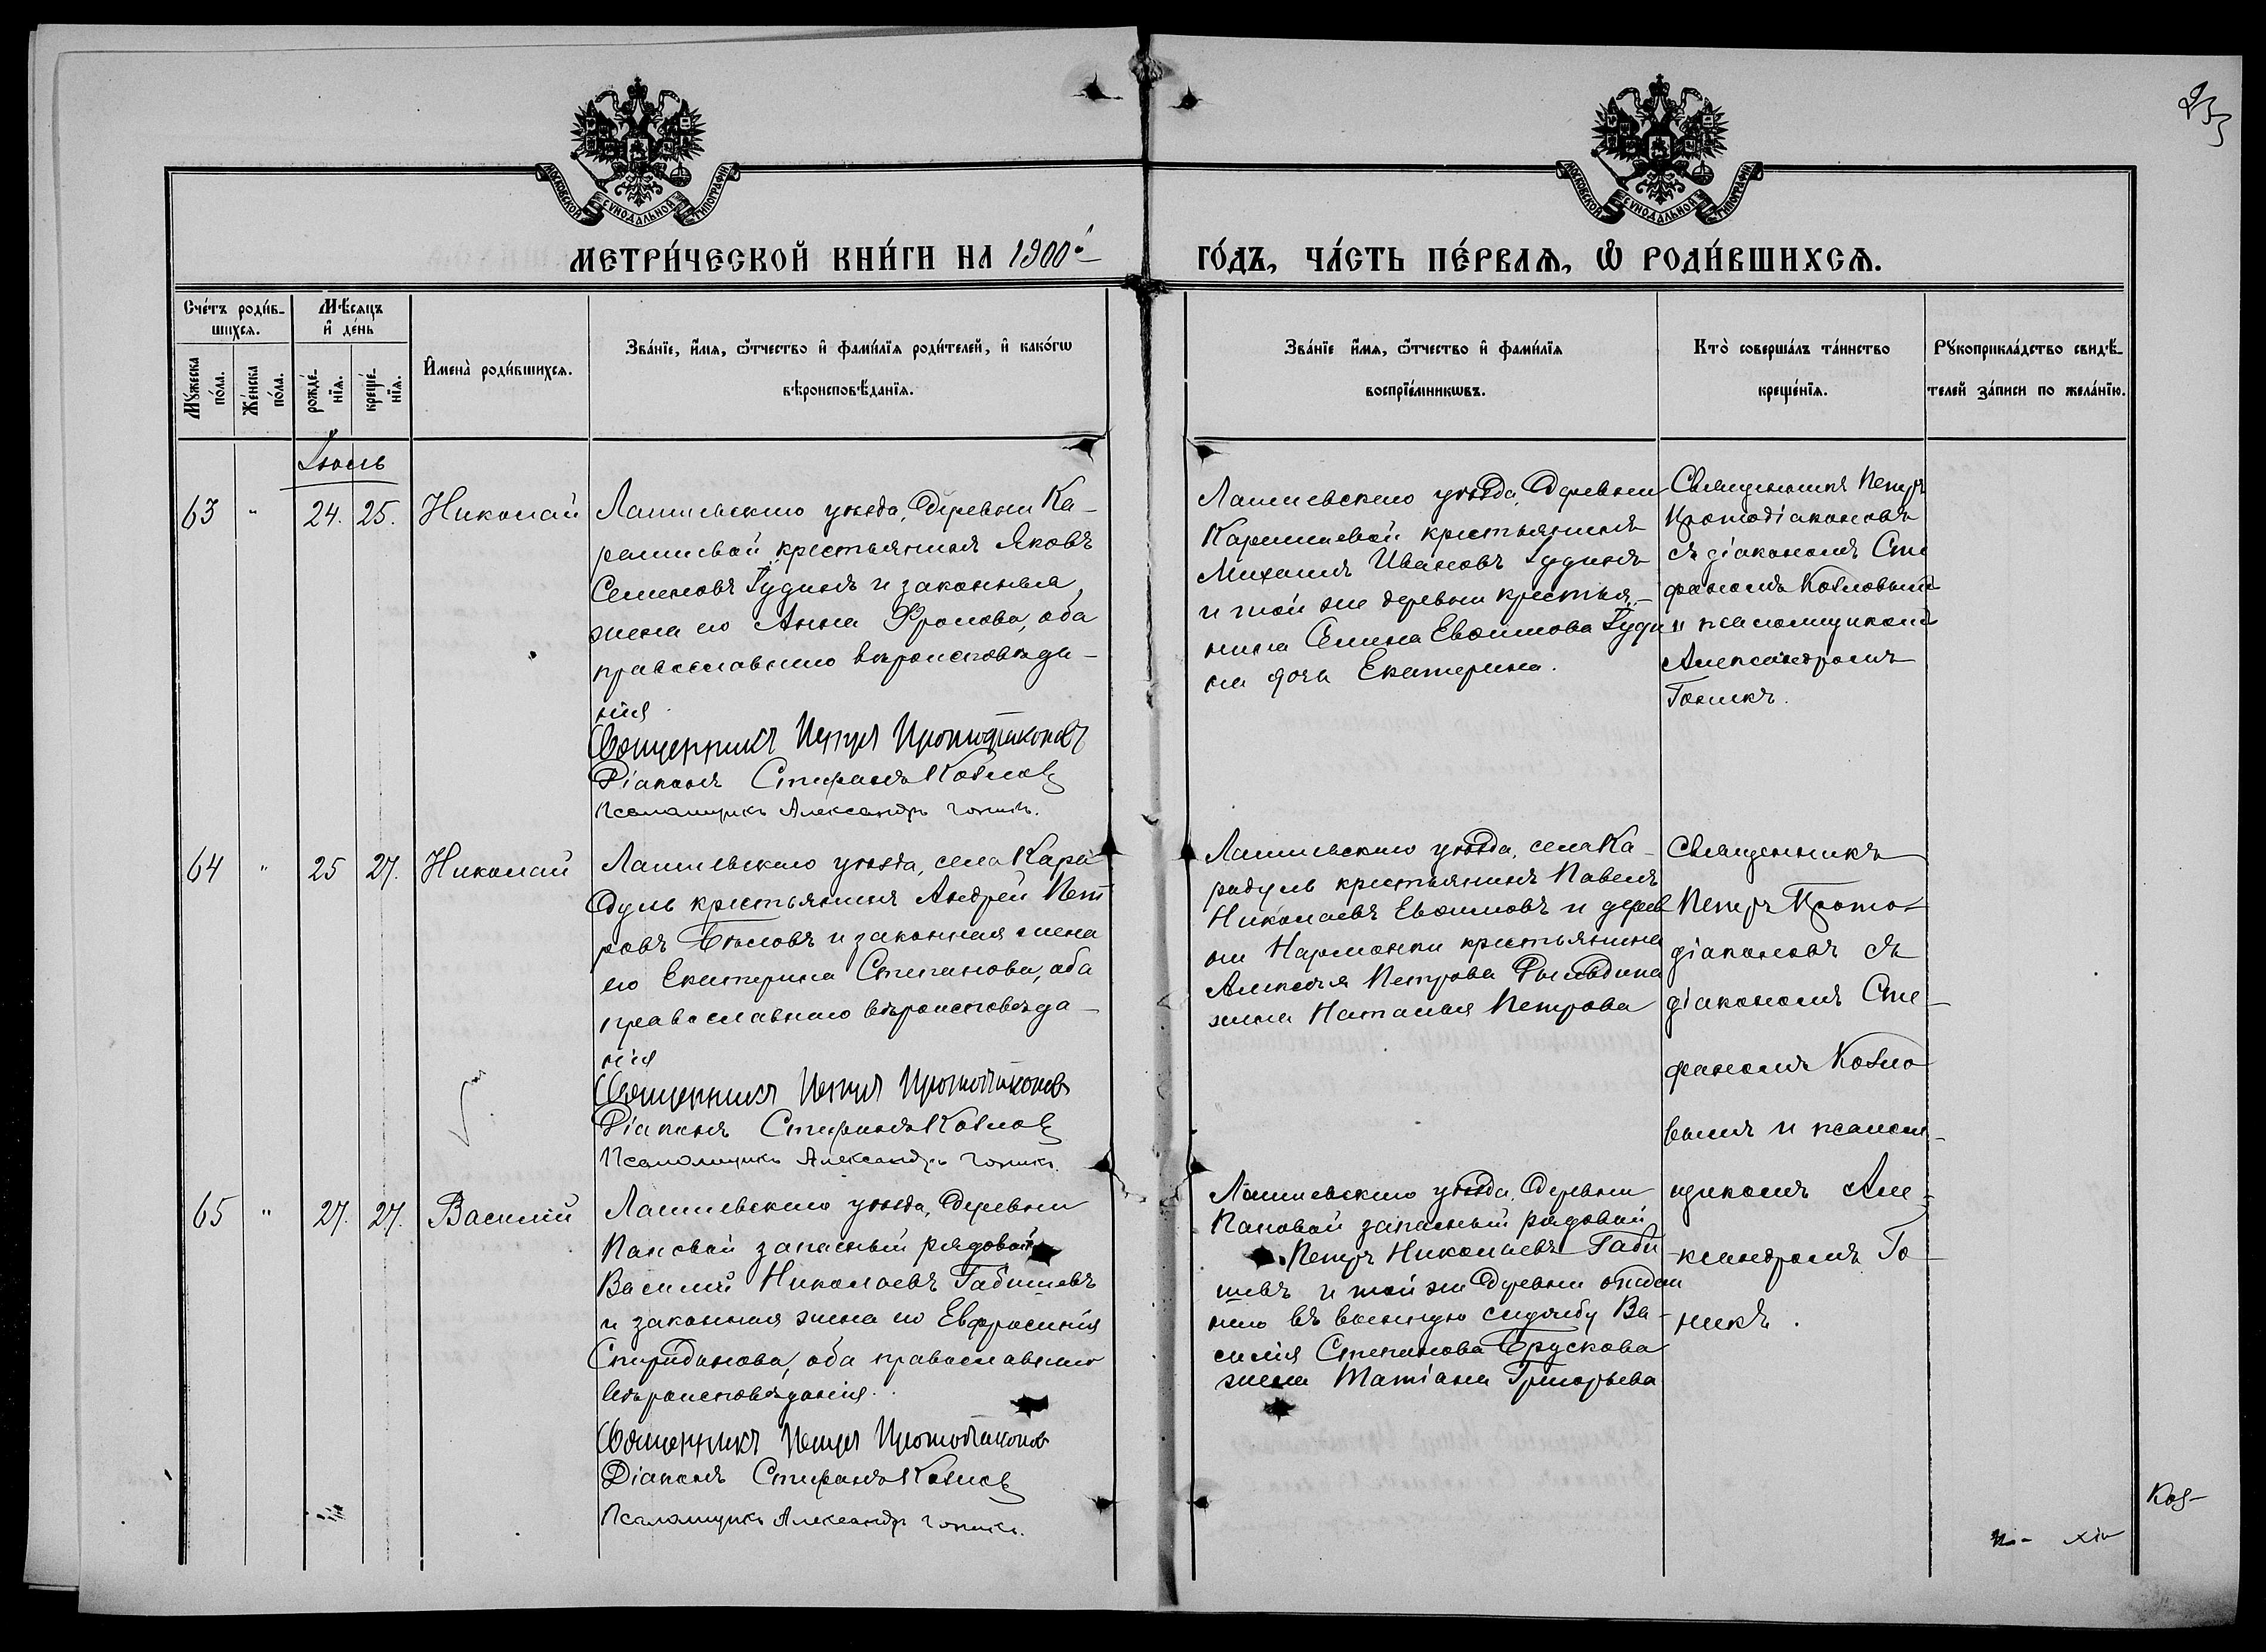 233
МОСКОВСКОЙ СѴНОДАЛЬНОЙ ТИПОГРАФІИ
МОСКОВСКОЙ СѴНОДАЛЬНОЙ ТИПОГРАФІИ
МЕТРИ́ЧЕСКОЙ КНИ́ГИ НА 1900й
ГО́ДЪ, ЧА́СТЬ ПЕ́РВАѦ, Ѡ҆ РОДИ́ВШИХСѦ.
Сче́тъ роди́в-
шихсѧ.
Мꙋ́жеска по́ла.
Же́нска по́ла.
Мѣ́сѧцъ
и҆ де́нь
рожде́-
нїѧ.
креще́-
нїѧ.
И҆мена̀ роди́вшихсѧ.
Зва́нїе, и҆́мѧ, ѻ҆́тчество и҆ фами́лїѧ роди́телей, и҆ како́гѡ
вѣроисповѣ́данїѧ.
Зва́нїе и҆́мѧ, ѻ҆́тчество и҆ фами́лїѧ
воспрїе́мникѡвъ.
Кто̀ соверша́лъ та́инство
креще́нїѧ.
Рꙋкоприкла́дство свидѣ́-
телей за́писи по жела́нїю.
Іюль
63 " 24. 25. Николай
Лаишевскаго уѣзда, деревни Ка-
раишевой крестьянинъ Яковъ
Семеновъ Гудинъ и законная
жена его Анна Фролова, оба
православнаго вѣроисповѣда-
нія
Священникъ Петръ Протодіаконовъ
Діаконъ Стефанъ Козловъ
Псаломщикъ Александръ Гоникъ.
Лаишевскаго уѣзда, деревни
Караишевой крестьянинъ
Михаилъ Ивановъ Гудинъ
и той же деревни крестья-
нина Семена Евѳимова Гуди
на дочь Екатерина.
Священникъ Петръ
Протодіаконовъ
съ діакономъ Сте
фаномъ Козловымъ
и псаломщикомъ
Александромъ
Гоникъ.
64 " 25 27. Николай
Лаишевскаго уѣзда, села Кара
дуль крестьянинъ Андрей Пет
ровъ Бѣловъ и законная жена
его Екатерина Степанова, оба
православнаго вѣроисповѣда-
нія
Священникъ Петръ Протодіаконовъ
Діаконъ Стефанъ Козловъ
Псаломщикъ Александръ Гоникъ.
Лаишевскаго уѣзда, села Ка-
радуль крестьянинъ Павелъ
Николаевъ Евѳимовъ и дерев
ни Нармонки крестьянина
Алексѣя Петрова
жена Наталья Петрова
Священникъ
Петръ Прото-
діаконовъ съ
діакономъ Сте-
фаномъ Козло
вымъ и псалом-
щикомъ Але-
ксандромъ Го-
никъ.
65 " 27. 27. Василій
Лаишевскаго уѣзда, деревни
Пановой запасный рядовой
Василій Николаевъ Габишевъ
и законная жена его Евфросинія
Спиридонова, оба православнаго
вѣроисповѣданія.
Священникъ Петръ Протодіаконовъ
Діаконъ Стефанъ Козловъ
Псаломщикъ Александръ Гоникъ.
Лаишевскаго уѣзда, деревни
Пановой запасный рядовой
Петръ Николаевъ Габи
шевъ и той же деревни отдан
наго въ военную службу Ва-
силія Степанова Брускова
жена Татіана Григорьева
Коз-